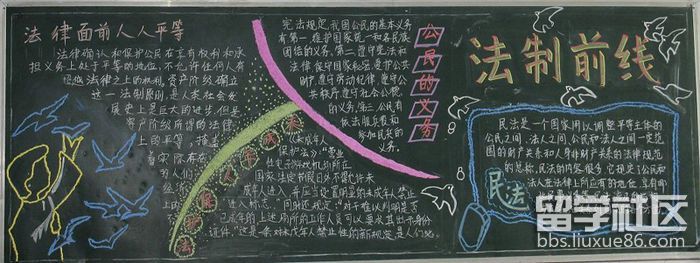 法律面前人人平等
法律确认和保护公民在享有权利和承
担义务上处于平等的地位,不允许任何人有
超越法律之上的权利。资产阶级确立
这一法制原则,是人类社会发
展史上是巨大的进步。但是
资产阶级所谓的法律
上的平等,掩盖
着实际存在
的人们
经济
宪法规定,我国公民的基本义务
有第一维护国家统一和各民族
团结的义务。第二遵守宪法和
法律,保守国家秘密,爱护公共
财产,遵守劳动纪律,遵守公
共秩序,遵守社会公
的义务。第三公民有
依法服兵役和
参加民兵的
义务。
公民的义务
《未成年人
保护法》营业
性电子游戏机场所在
国家法定节假日外不得允许
未成年人进入,并应当设置明显的未成年人禁止
进入标志。同时还规定对于难以判明是否
已成年的上述场所的工作人员可以要求其出示身份
证件。这是一条对未成年人禁止性的新规定,是人们
法制前线
民法是一个国家用以调整平等主体的
公民之间、法人之间、公民和法人之间一定范
围的财产关系和人身非财产关系的法律规范
的总称。民法的内容很多,它规定公民和
法人在法律上所应有的地位
民法
留学社区
bbs.liuxue86.com